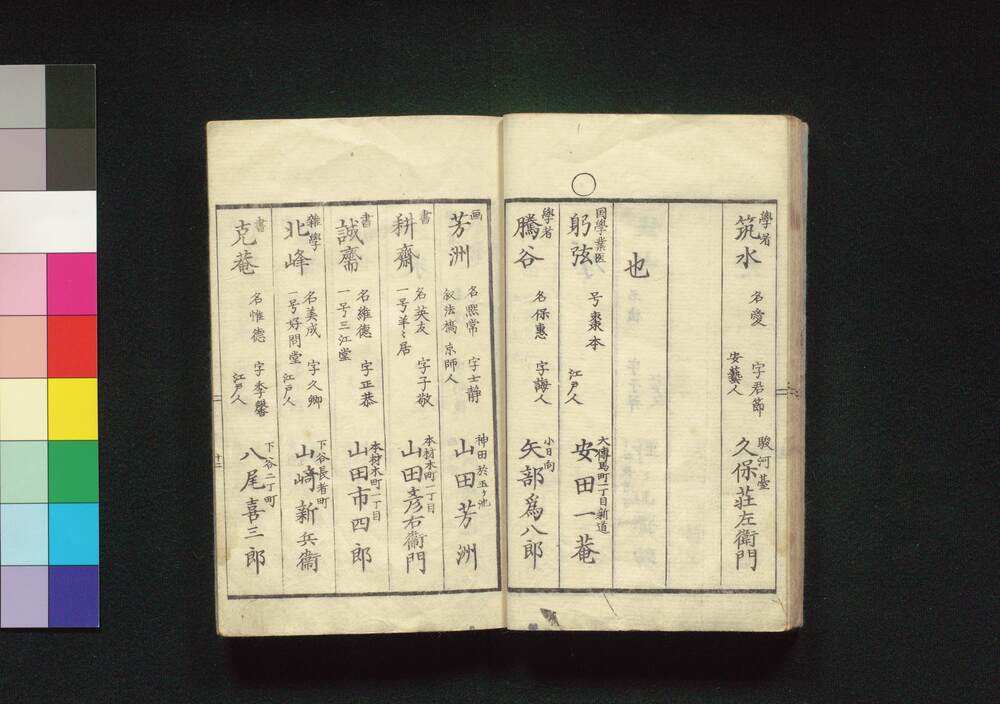 學者
筑水
名愛
字君節
安藝人
駿河臺
久保荘左衛門
也
国學業医
躬弦
号棗本
江戸人
大傳馬町二丁目新道
安田一菴
學者
騰谷
名保惠
字誨人
小日向
矢部爲八郎
画
芳洲
名煕常
字士静
叙法橋
京師人
神田於玉ヶ池
山田芳洲
書
耕齋
名英友
字子敬
一号羊〻居
本材木町一丁目
山田彦右衞門
書
誠齋
名維德
字正恭
一号三江堂
本材木町一丁目
山田市四郎
雜學
北峰
名美成
字久卿
一号好問堂
江戸人
下谷長者町
山﨑新兵衞
書
克菴
名惟德
字季馨
江戸人
下谷二丁町
八尾喜三郎
十二